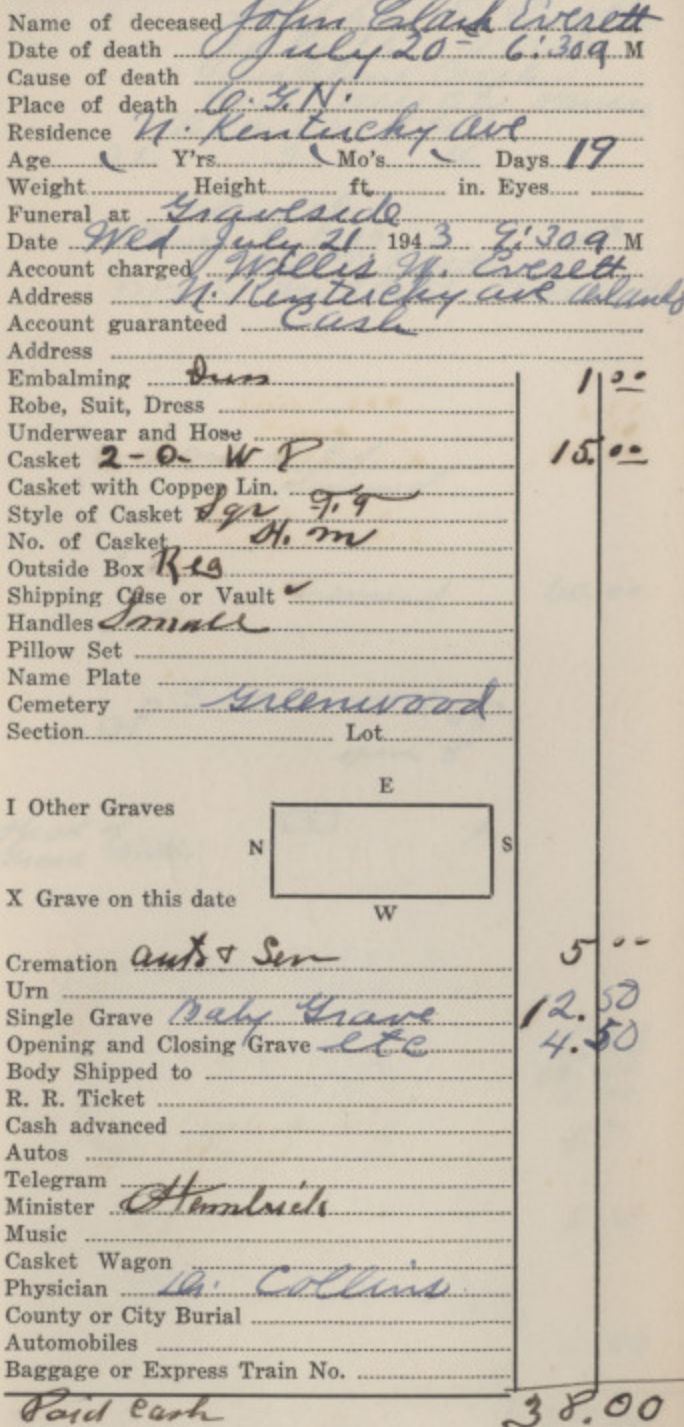 Name of deceased John Clark Everett
Date of death July 20 - 6:30 a M
Cause of death
Place of death O. G. H.
Residence N. Kentucky Ave
Age Y'rs. Mo's. Days 19
Weight Height ft. in. Eyes
Funeral at Graveside
Date Wed July 21 1943 9:30 a M
Account charged Willis M. Everett
Address N. Kentucky ave Orlando
Account guaranteed Cash
Address
Embalming 1 00
Robe, Suit, Dress
Underwear and Hose
Casket 2-0- W P 15. 00
Casket with Copper Lin.
Style of Casket Sqr F. T
No. of Casket H. M
Outside Box Reg
Shipping Case or Vault
Handles Small
Pillow Set
Name Plate
Cemetery Greenwood
Section Lot
E
I Other Graves
N S
X Grave on this date
W
Cremation auto & Serv 5 00
Urn
Single Grave Baby Grave 12.50
Opening and Closing Grave etc 4.50
Body Shipped to
R. R. Ticket
Cash advanced
Autos
Telegram
Minister
Music
Casket Wagon
Physician Dr. Collins
County or City Burial
Automobiles
Baggage or Express Train No.
Paid Cash 38.00